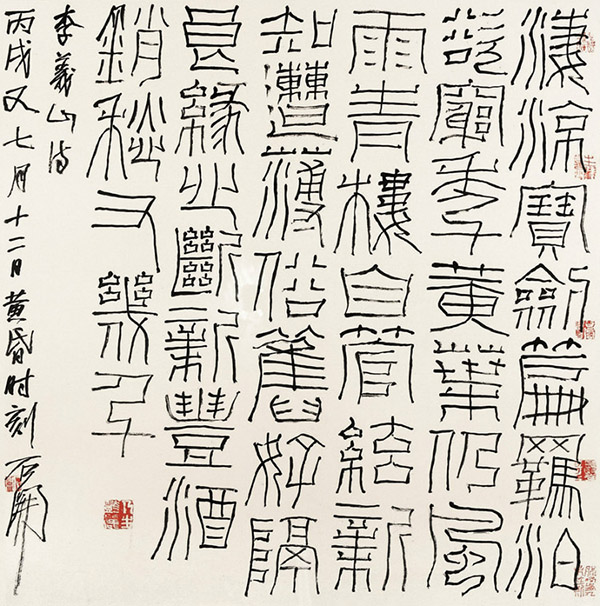 淒涼寶劍篇羈泊
欲窮年黃葉仍風
雨青樓自管絃新
知遭薄俗舊好隔
良緣心斷新豐酒
銷愁斗幾千
李義山詩
丙戌又七月十二日黄昏时刻 石開